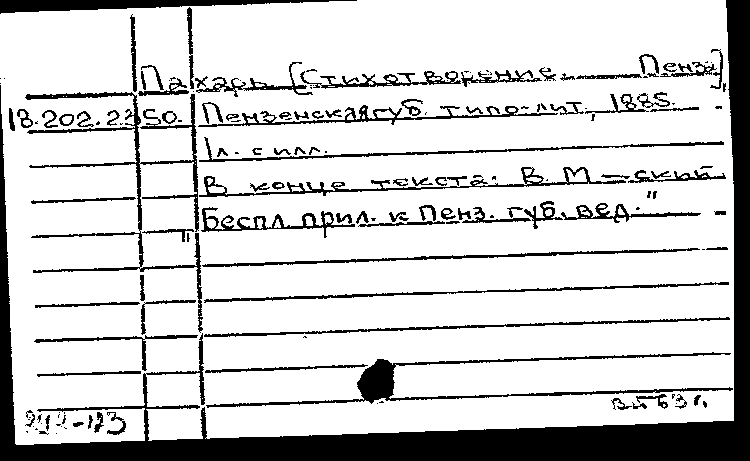 Пахарь [Стихотворение. Пенза],
18.202.2.250. Пензенская губ. типо-лит, 1885.
1л. с илл.
В конце текста: В. М-ский
"Беспл. прил. к Пенз. губ. вед."
242-173